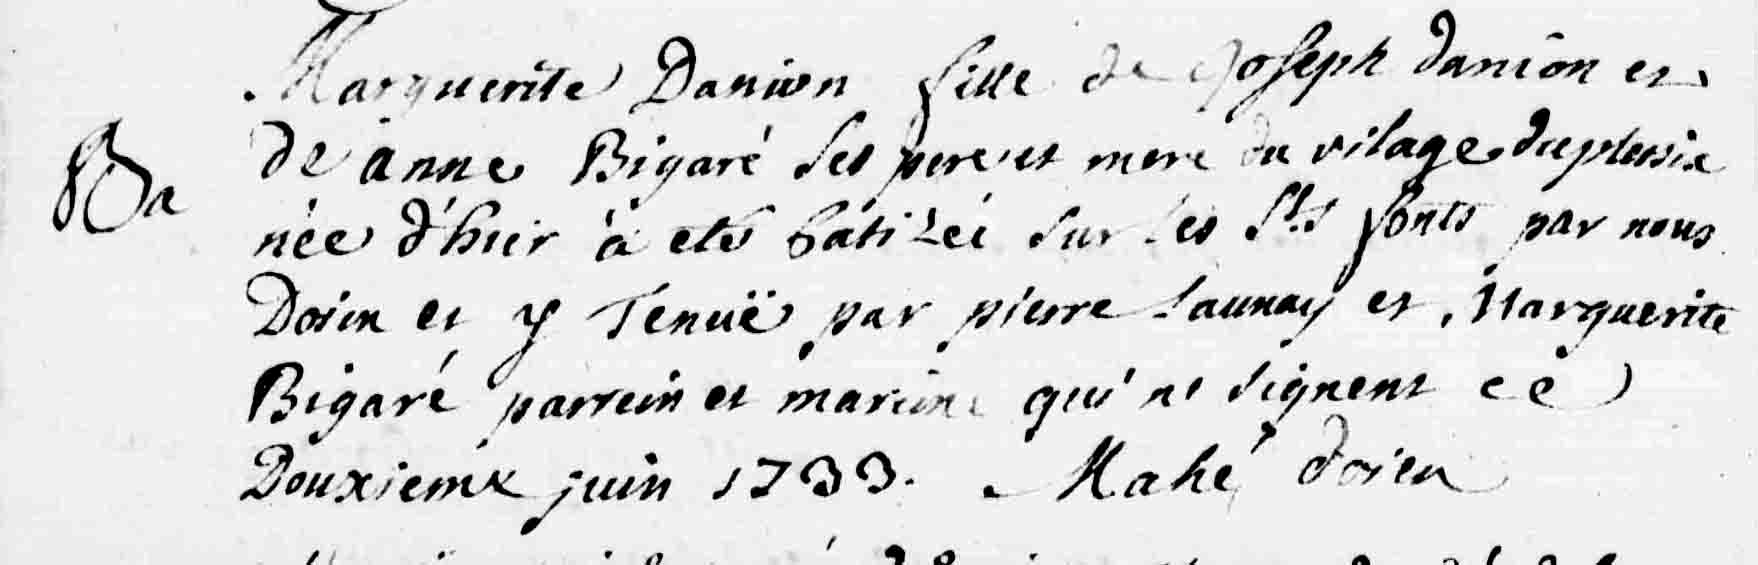 Marguerite Danion fille de Joseph danion et
de anne Bigaré ses pere et mere du vilage duplessix
Ba
née d'hier à eté bâtizéé sur les Sts fonts par nous
Doien et y Tenuë par pierre Launay et Marguerite
Bigaré parrein et mareine qui ne signent ce
Douxieme juin 1733. Mahé doien